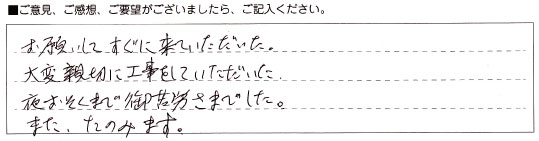 ■ご意見、ご感想、ご要望がございましたら、ご記入ください。
お願いしてすぐに来ていただいた。
大変親切に工事をしていただいた.
夜おそくまで御苦労さまでした。
また、たのみます。